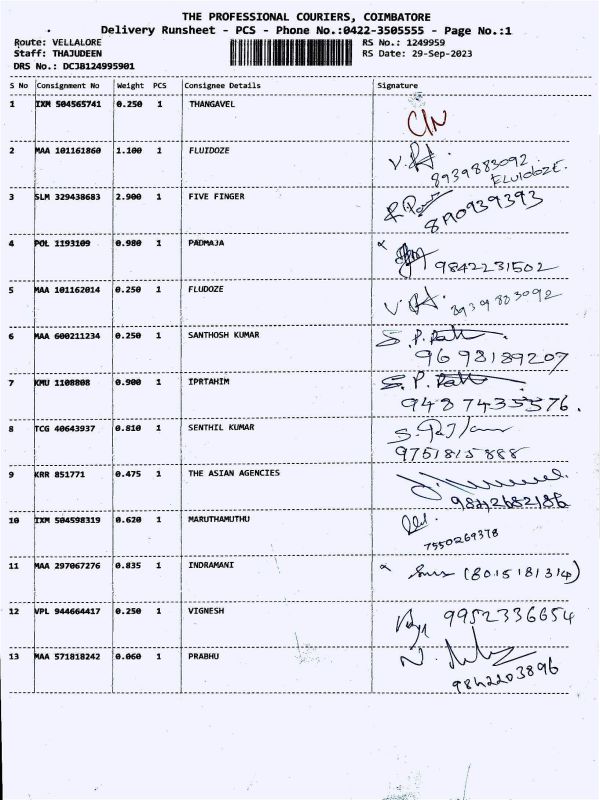 THE PROFESSIONAL COURIERS, COIMBATORE
Delivery Runsheet - PCS - Phone No.:0422-3505555 - Page No.:1
Route: VELLALORE RS No.: 1249959
Staff: THAJUDEEN RS Date: 29-Sep-2023
DRS No.: DCJB124995901
S No Consignment No Weight PCS Consignee Details Signature
1 IXM 504565741 0.250 1 THANGAVEL
2 MAA 101161860 1.100 1 FLUIDOZE
8939883092
FLUIDOZE.
3 SLM 329438683 2.900 1 FIVE FINGER
4 POL 1193109 0.980 1 PADMAJA
9842231502
5 MAA 101162014 0.250 1 FLUDOZE
8939883092
6 MAA 600211234 0.250 1 SANTHOSH KUMAR
9698189207
7 KMU 1108808 0.900 1 IPRTAHIM
8 TCG 40643937 0.810 1 SENTHIL KUMAR
9751815888
9 KRR 851771 0.475 1 THE ASIAN AGENCIES
9842682186
10 IXM 504598319 0.620 1 MARUTHAMUTHU
7550269378
11 MAA 297067276 0.835 1 INDRAMANI (8015181314)
12 VPL 944664417 0.250 1 VIGNESH 9952336654
13 MAA 571818242 0.060 1 PRABHU
9842203896